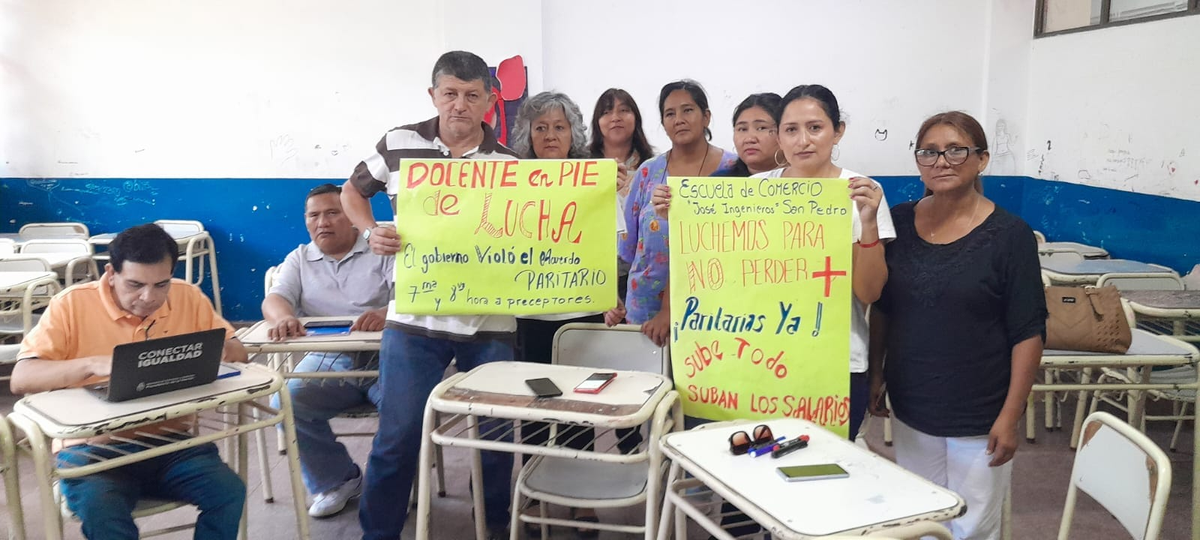 DOCENTE en PIE
de LUCHA
El gobierno Violó el Acuerdo
PARITARIO
7ma y 8va hora a preceptores.
Escuela de COMERCIO
"José Ingenieros" San Pedro
LUCHEMOS PARA
NO PERDER +
¡Paritarias Ya!
SUBE TODO
SUBAN LOS SALARIOS
CONECTAR
IGUALDAD